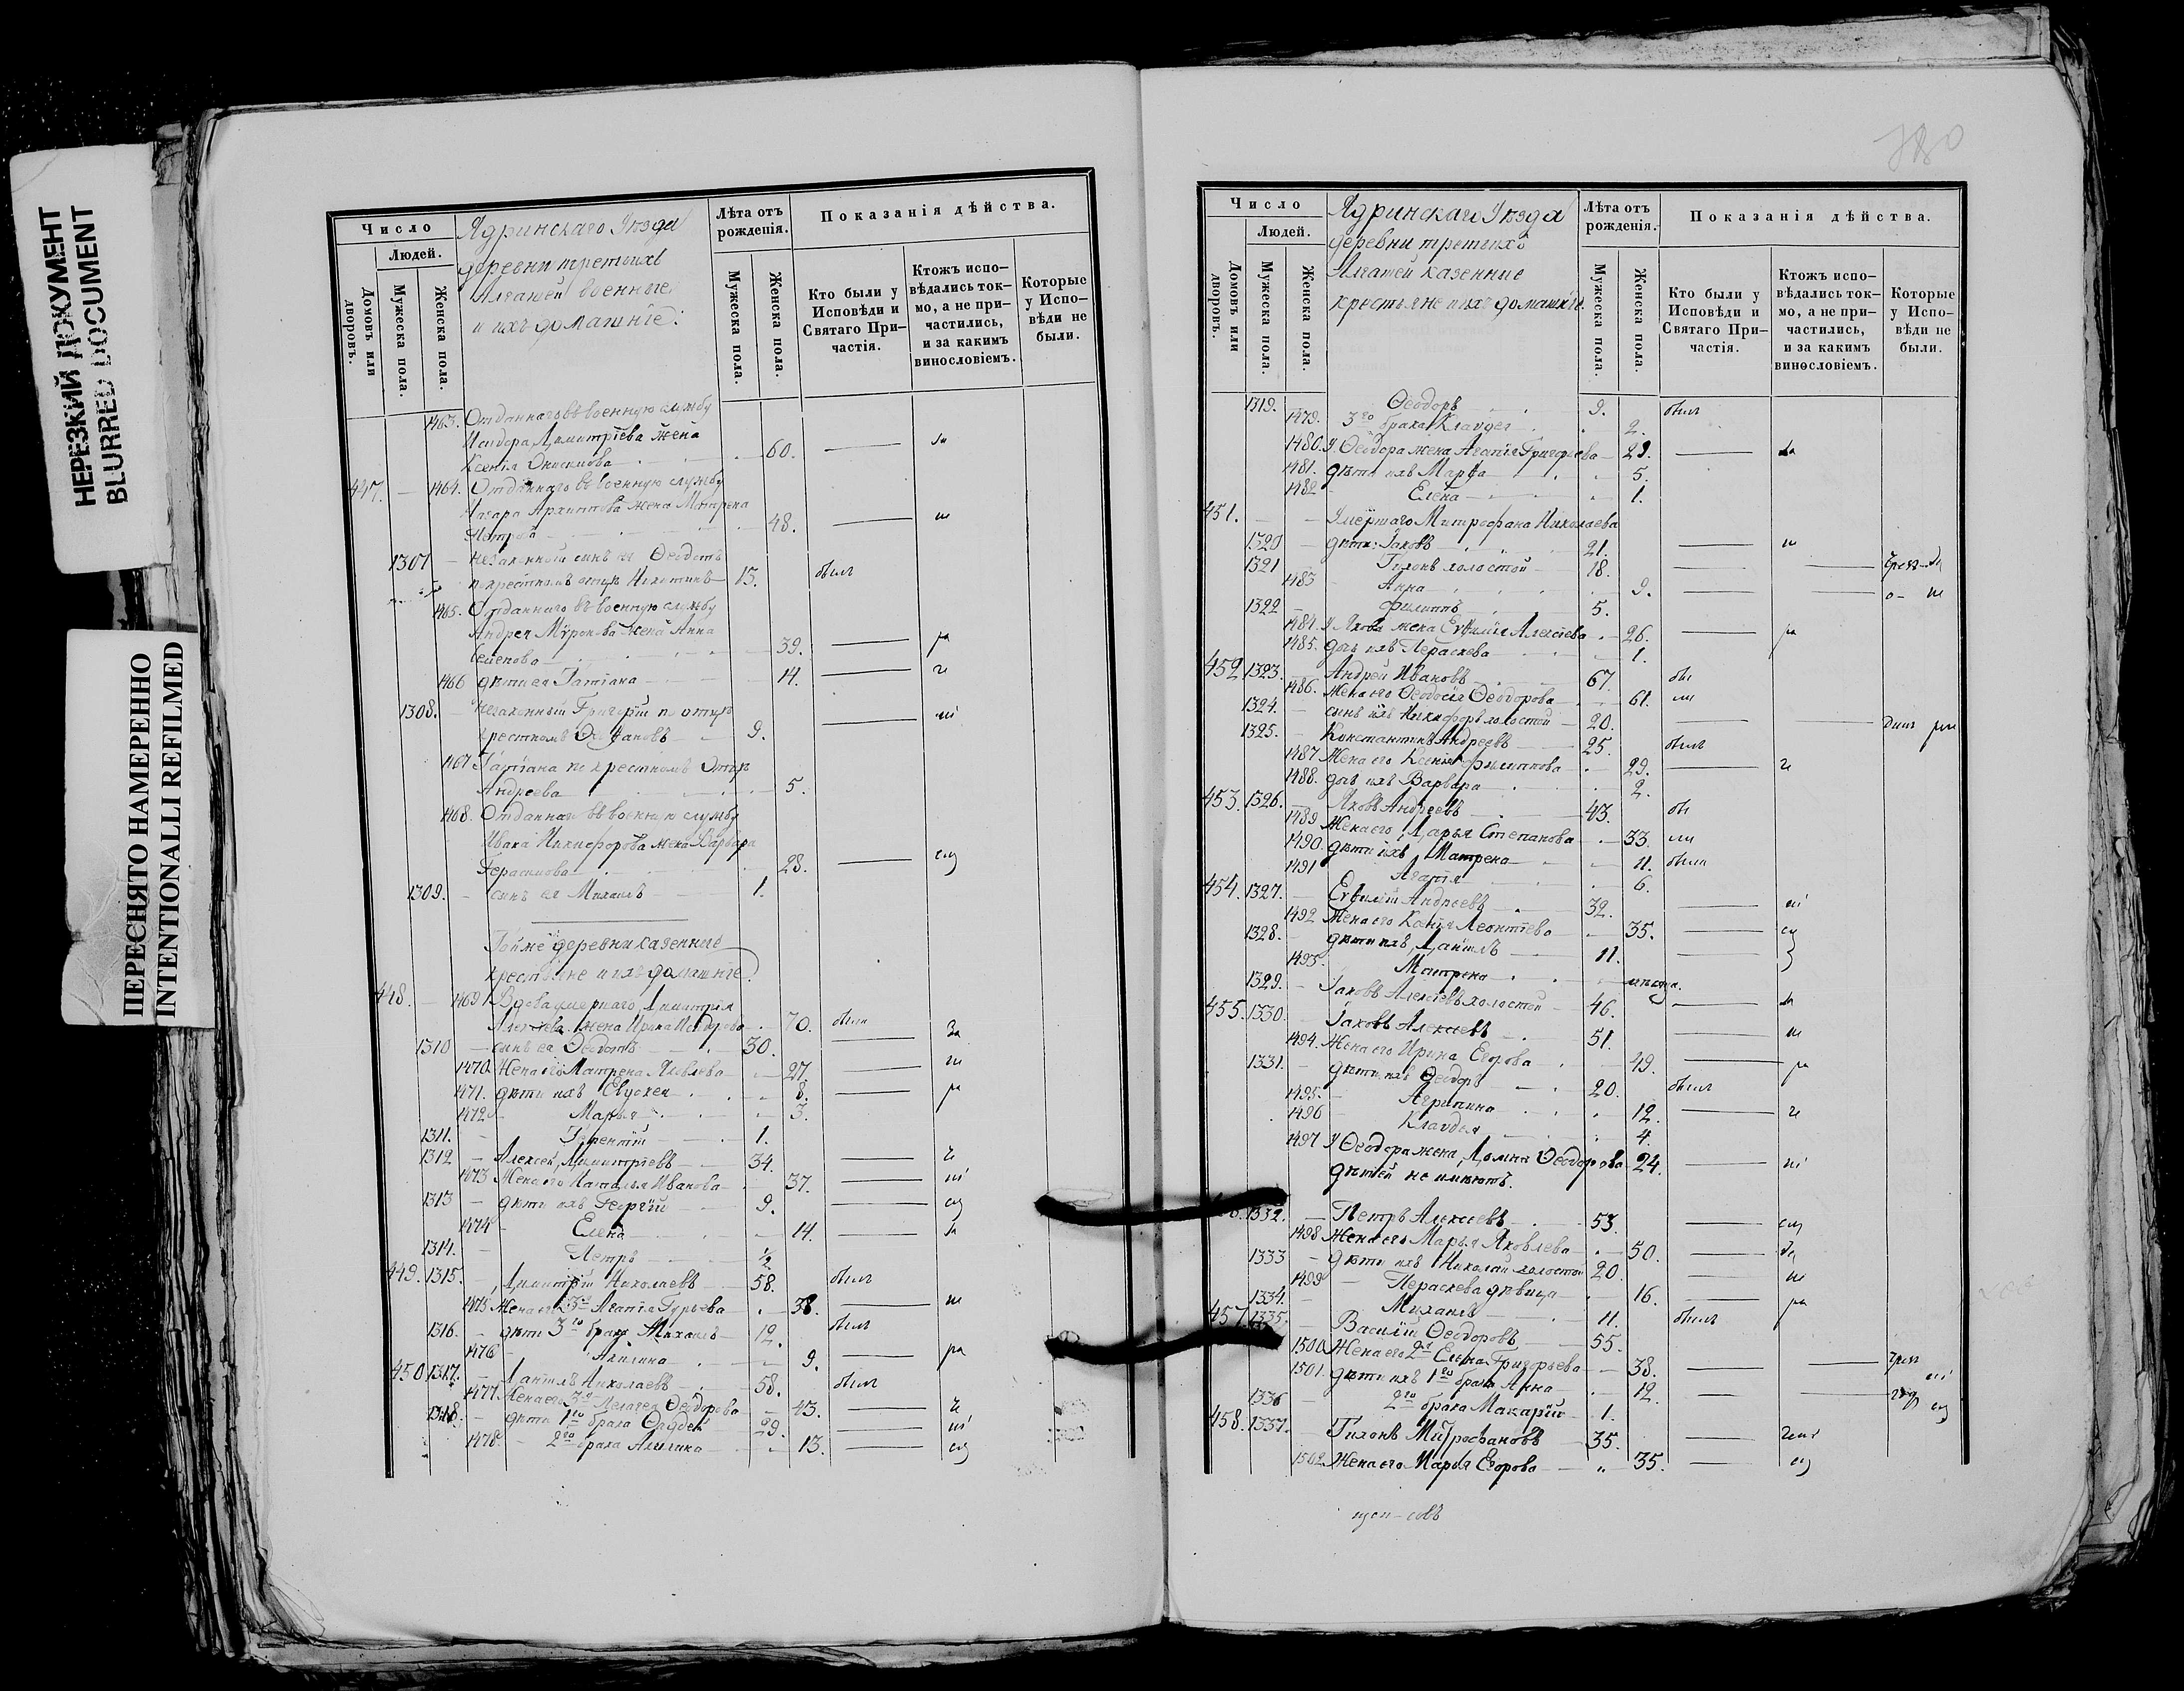 НЕРЕЗКИЙ ДОКУМЕНТ
BLURRED DOCUMENT
ПЕРЕСНЯТО НАМЕРЕННО
INTENTIONALLI REFILMED
Число
Людей.
Домовъ или дворовъ.
Мужеска пола.
Женска пола.
Ядринскаго Уѣзда
деревни третьихъ
Алгашей военные
и ихъ домашніе:
Лѣта отъ рожденія.
Мужеска пола.
Женска пола.
Показанія дѣйства.
Кто были у Исповѣди и Святаго Причастія.
Ктожъ исповѣдались токмо, а не причастились, и за какимъ винословіемъ.
Которые у Исповѣди не были.
1463. Отданнаго въ военную службу
Исидора Димитріева жена
Ксенія 60.
447. 1464. Отданнаго въ военную службу
Назара Архипова жена Матрена
Петрова 48.
1307 незаконный сынъ ея Ѳеодотъ
по крестномъ отцѣ Никитинъ 15. былъ
1465. Отданнаго въ военную службу
Андрея Миронова жена Анна
Семенова 39.
1466 дѣти ея Татіана 14.
1308. незаконный Григорій по отцѣ
крестномъ 9.
1467 Татіана по крестномъ отцѣ
Андреева 5.
1468. Отданнаго въ военную службу
Ивана Никифорова жена Варвара
Герасимова 28.
1309. сынъ ея Михаилъ 1.
Той же деревни казенные
крестьяне и ихъ домашніе
448. 1469 Вдова умершаго Димитрія
Алексѣева жена Ирина Исидорова 70. была
1310 сынъ ея Ѳеодотъ 30.
1470. Жена его Матрена Яковлева 27
1471. дѣти ихъ Евдокея 8.
1472 Марья 3.
1311. Терентій 1.
1312 Алексей Димитріевъ 34.
1473 Жена его Наталья Иванова 37.
1313 дѣти ихъ Георгій 9.
1474 Елена 14.
1314. Петръ ½
449. 1315. Димитрій Николаевъ 58. былъ
1475 Жена его 3я Агапія Гурьева 38.
1316. дѣти 3го брака Михаилъ 12. былъ
1476 Акилина 9.
450 1317. Даніилъ Николаевъ 58. былъ
1477. Жена его 3я Пелагея Ѳеодорова 43.
1318. дѣти 1го брака 29.
1478. 2го брака Акилина 13.
380
Число
Людей.
Домовъ или дворовъ.
Мужеска пола.
Женска пола.
Ядринскаго Уѣзда
деревни третьихъ
Алгашей казенные
крестьяне и ихъ домашніе.
Лѣта отъ рожденія.
Мужеска пола.
Женска пола.
Показанія дѣйства.
Кто были у Исповѣди и Святаго Причастія.
Ктожъ исповѣдались токмо, а не причастились, и за какимъ винословіемъ.
Которые у Исповѣди не были.
1319. Ѳеодоръ 9. былъ
1479. 3го брака Клавдея 2.
1480. У Ѳеодора жена Агапія Григорьева 29.
1481. дѣти ихъ Марѳа 5.
1482 Елена 1.
451. Умершаго Митрофана Николаева
1320 дѣти: Іаковъ 21.
1321 Тихонъ холостой 18.
1483 Анна 9.
1322 Филиппъ 5.
1484. У Якова жена Евфимія Алексѣева 26.
1485. дочь ихъ Параскева 1.
452 1323. Андрей Ивановъ 67.
1486. Жена его Ѳеодосія Ѳеодорова 61.
1324. сынъ ихъ Никифоръ холостой 20.
1325. Константинъ Андреевъ 25. былъ
1487 Жена его Ксенія Филиппова 29.
1488. дочь ихъ Варвара 2.
453. 1326. Яковъ Андреевъ 43.
1489 Жена его Дарья Степанова 33.
1490. дѣти ихъ Матрена 11. была
1491 Агапія 6.
454. 1327. Евфимій Андреевъ 32.
1492 Жена его Ксенія Леонтіева 35.
1328. дѣти ихъ Даніилъ 11.
1493. Матрена
1329. Іаковъ Алексѣевъ холостой 46.
455. 1330. Іаковъ Алексѣевъ 51.
1494. Жена его Ирина Егорова 49.
1331. дѣти ихъ Ѳеодоръ 20. былъ
1495. Агрипина 12.
1496 Клавдея 4.
1497 У Ѳеодора жена Домна Ѳеодорова 24.
дѣтей не имѣютъ.
1332. Петръ Алексѣевъ 53.
1498 Жена его Марья Яковлева 50.
1333 дѣти ихъ Николай холостой 20.
1499 Параскева дѣвица 16.
1334. Михаилъ 11. былъ
457. 1335. Василій Ѳеодоровъ 55.
1500. Жена его 2я Елена Григорьева 38.
1501. дѣти ихъ 1го брака Анна 12.
1336 2го брака Макарій 1.
458. 1337. Тихонъ Митрофановъ 35.
1502 Жена его Марья Егорова 35.